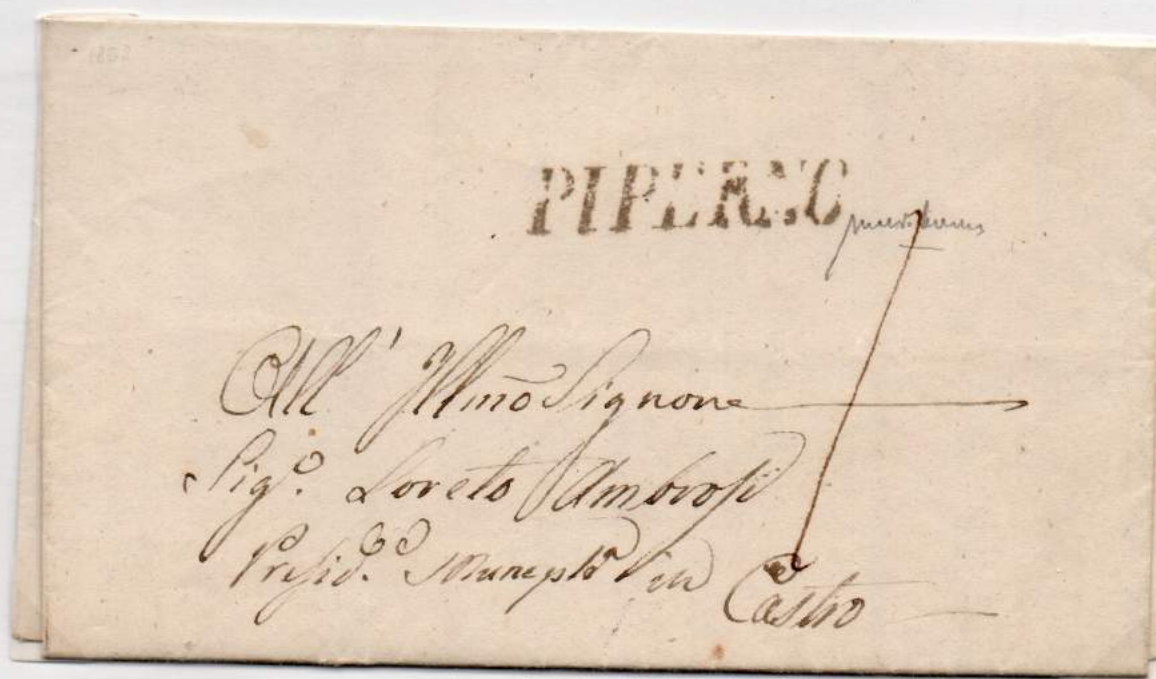 PIPERNO
All' Illmo Signore
Sig.e Loreto Ambrosi
Presid.e in Castro